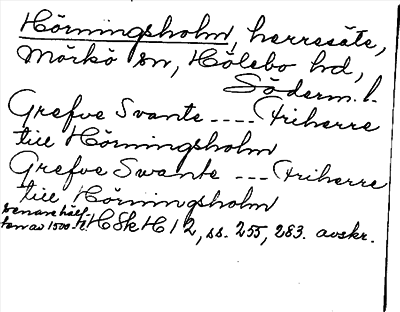 Hörningsholm, herresäte,
Mörkö sn, Hölebo hd,
Söderm. l.
Grefve Svante ---- Friherre
till Hörningsholm
Grefve Swante --- Friherre
till Hörningsholm
senare hälf-
ten av 1500-t. HSkH 12, ss. 255, 283. avskr.